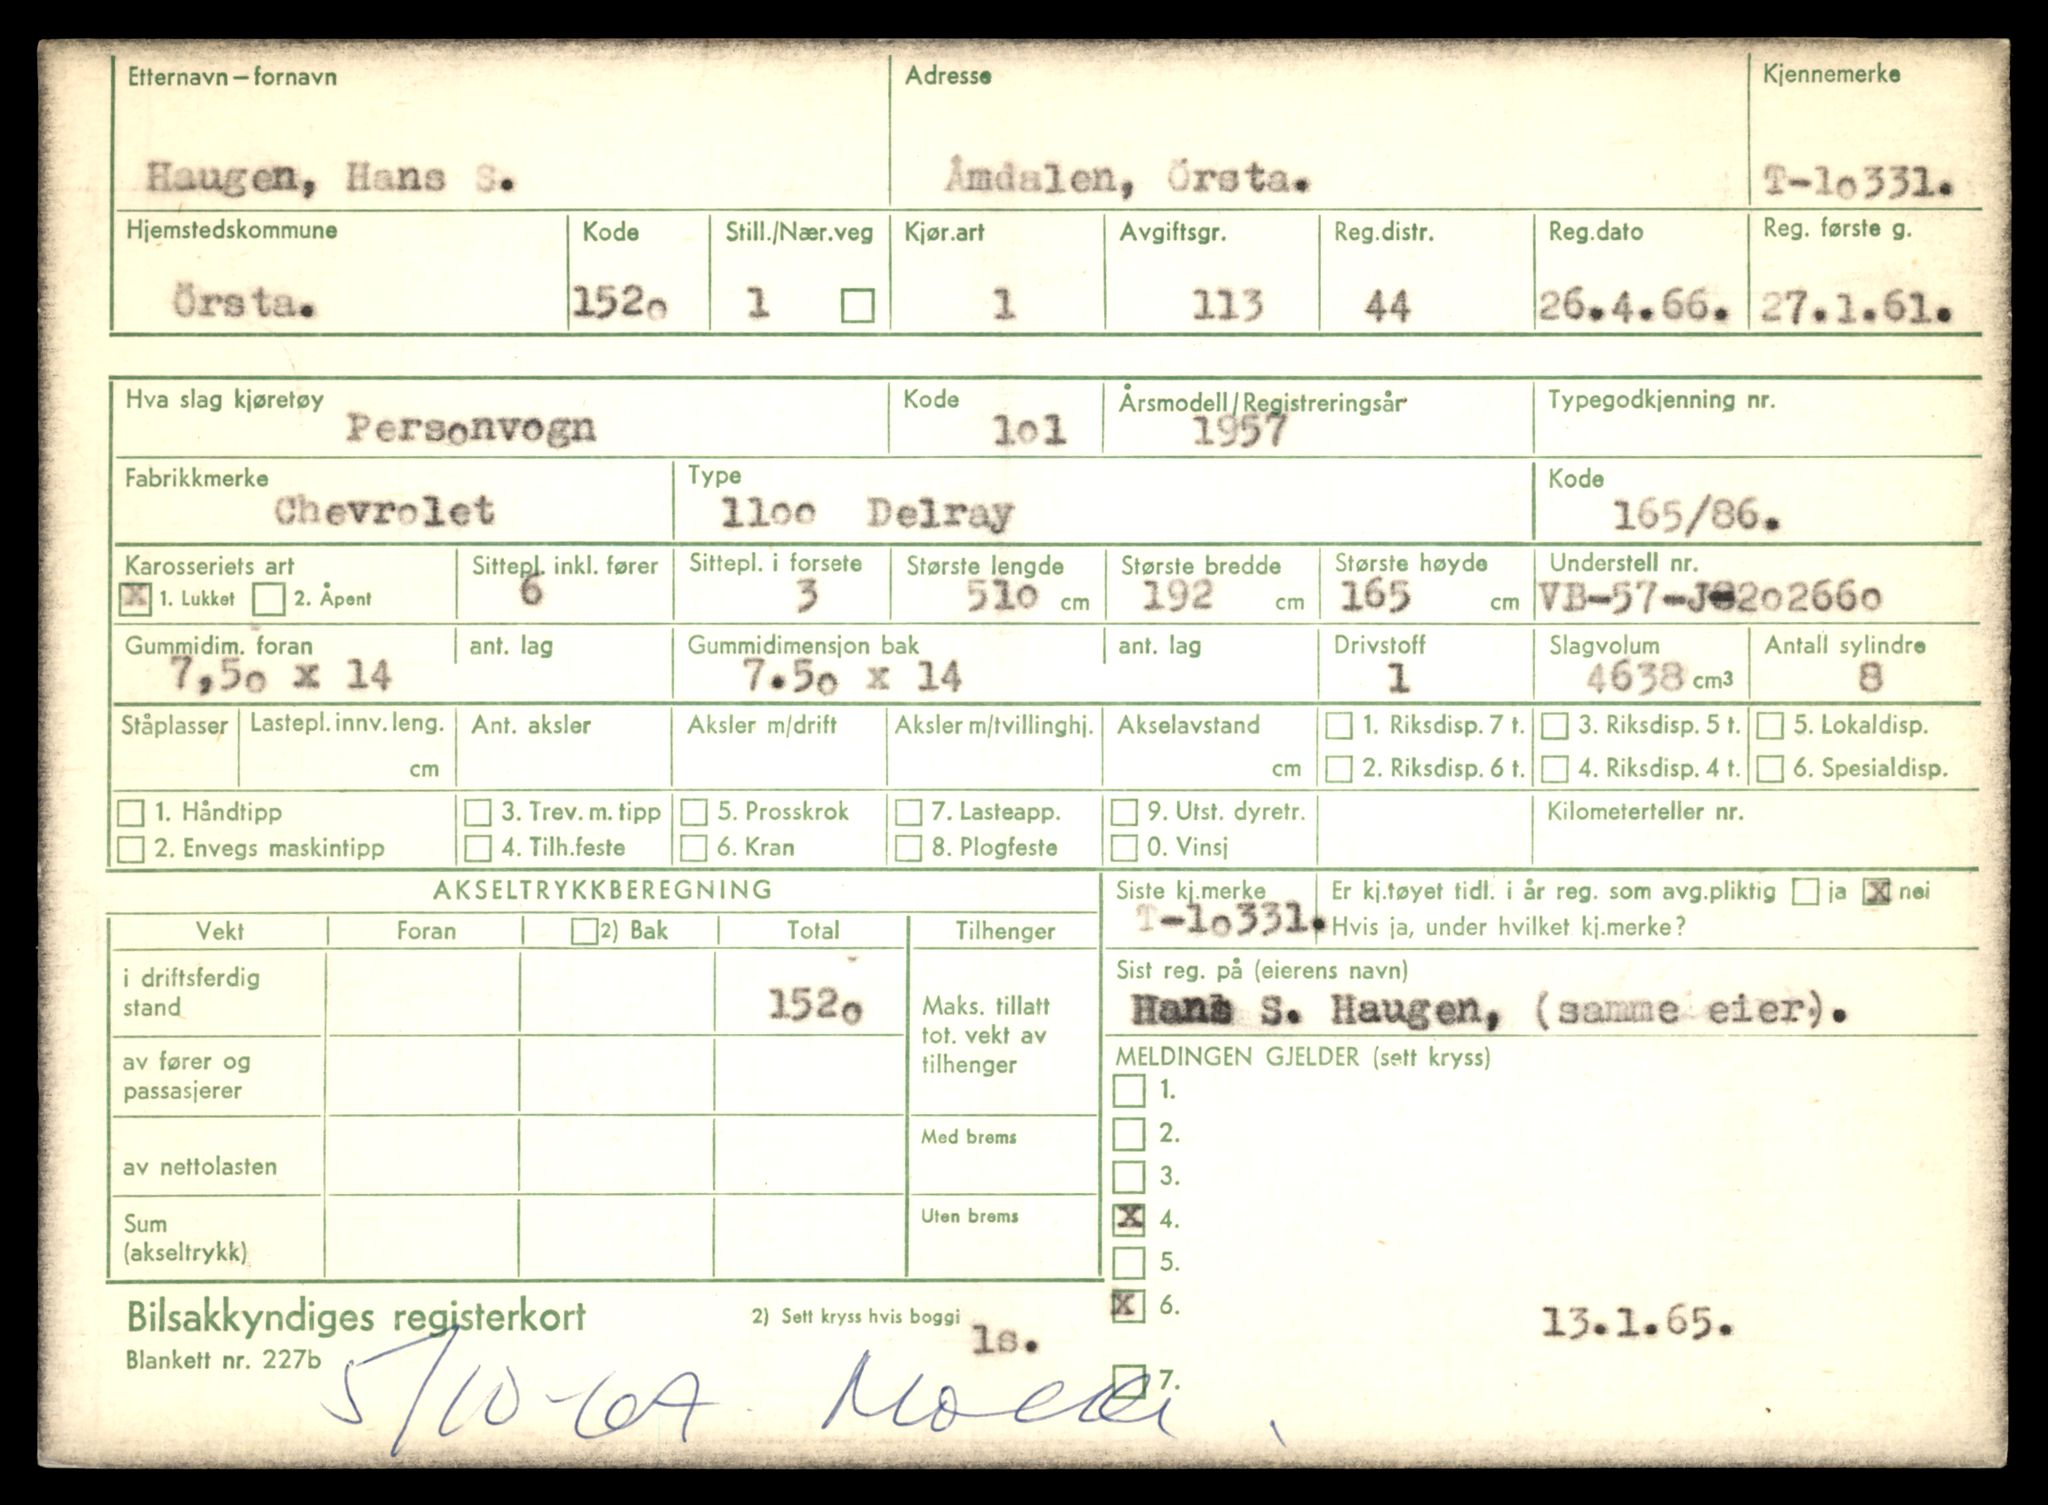 Etternavn – fornavn Adresse Kjennemerke
Haugen, Hans S. Åmdalen, Örsta. T-10331.
Hjemstedskommune Kode Still./Nær.veg Kjør.art Avgiftsgr. Reg.distr. Reg.dato Reg. første g.
Örsta. 1520 1 1 113 44 26.4.66. 27.1.61.
Hva slag kjøretøy Kode Årsmodell/Registreringsår Typegodkjenning nr.
Personvogn 101 1957
Fabrikkmerke Type Kode
Chevrolet 1100 Delray 165/86.
Karosseriets art Sittepl. inkl. fører Sittepl. i forsete Største lengde Største bredde Største høyde Understell nr.
X 1. Lukket 2. Åpent 6 3 510 cm 192 cm 165 cm VB-57-J-202660
Gummidim. foran ant. lag Gummidimensjon bak ant. lag Drivstoff Slagvolum Antall sylindre
7,50 x 14 7.50 x 14 1 4638 cm3 8
Ståplasser Lastepl. innv. leng. Ant. aksler Aksler m/drift Aksler m/tvillinghj. Akselavstand 1. Riksdisp. 7 t. 3. Riksdisp. 5 t. 5. Lokaldisp.
cm cm 2. Riksdisp. 6 t. 4. Riksdisp. 4 t. 6. Spesialdisp.
1. Håndtipp 3. Trev. m. tipp 5. Prosskrok 7. Lasteapp. 9. Utst. dyretr. Kilometerteller nr.
2. Envegs maskintipp 4. Tilh.feste 6. Kran 8. Plogfeste 0. Vinsj
AKSELTRYKKBEREGNING Siste kj.merke Er kj.tøyet tidl. i år reg. som avg.pliktig ja X nei
T-10331. Hvis ja, under hvilket kj.merke?
Vekt Foran 2) Bak Total Tilhenger
i driftsferdig stand 1520 Maks. tillatt tot. vekt av tilhenger
Sist reg. på (eierens navn)
Hans S. Haugen, (samme eier).
av fører og passasjerer
MELDINGEN GJELDER (sett kryss)
1.
2.
Med brems
av nettolasten
3.
X 4.
Sum (akseltrykk) Uten brems
5.
X 6. 13.1.65.
Bilsakkyndiges registerkort 2) Sett kryss hvis boggi
ls.
Blankett nr. 227b
7.
5/10-67.